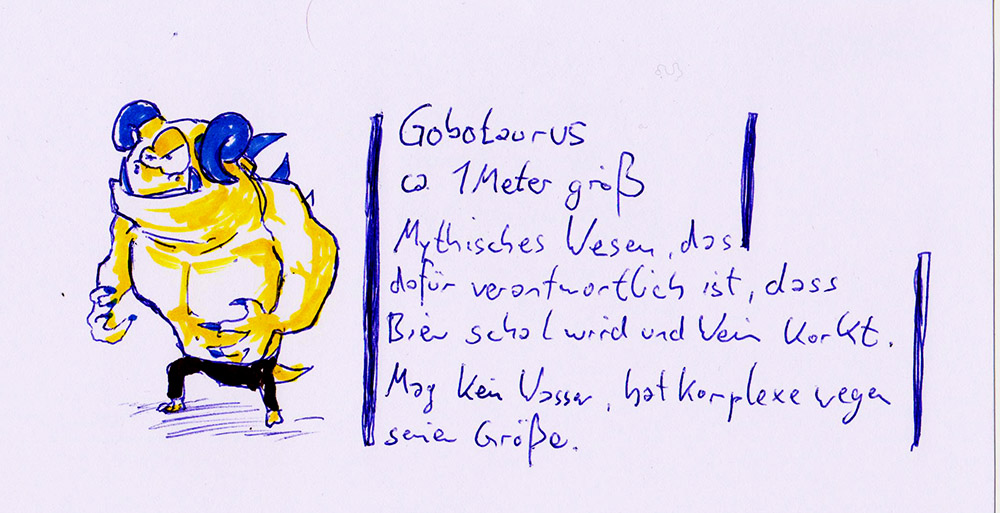 Gobotaurus
ca 1 Meter größ
Mythisches Wesen, das
dafür verantwortlich ist, dass
Bier schal wird und Wein korkt.
Mag kein Wasser, hat Komplexe wegen
seiner Größe.